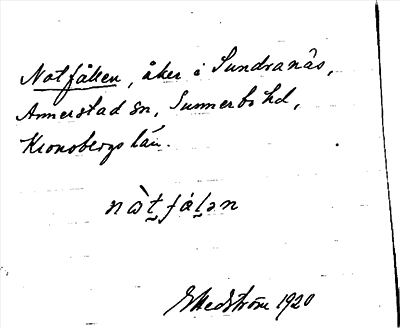 Notfållen, åker i Sundranäs,
Annerstad sn, Sunnerbo hd,
Kronobergs län.
nòt̰fål̰ən
G Hedström 1920